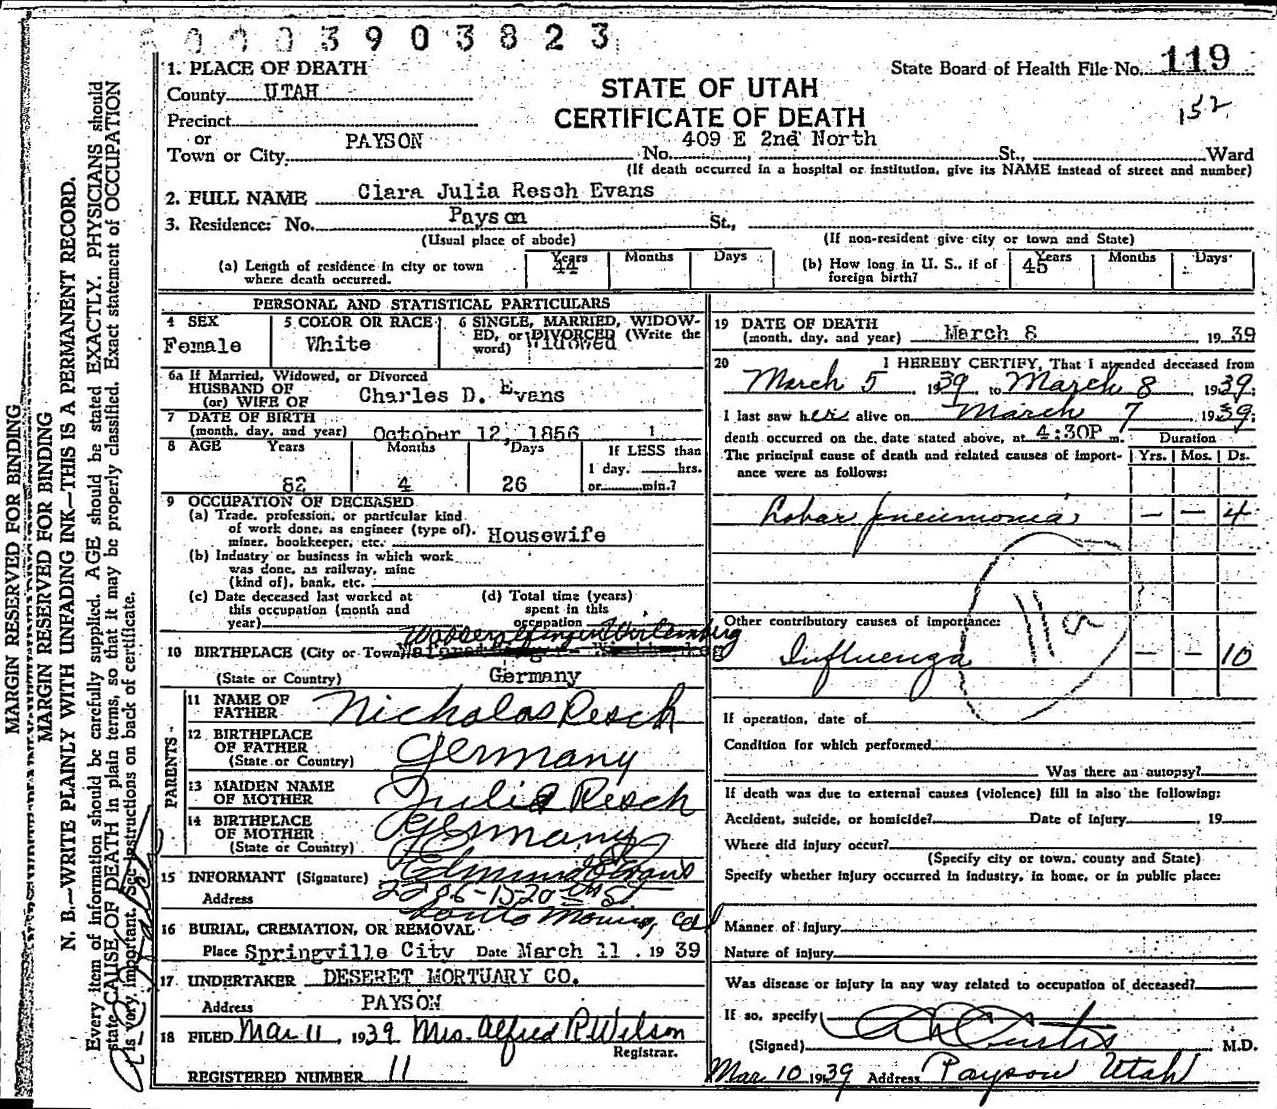 0003903823
1. PLACE OF DEATH
State Board of Health File No. 119
County UTAH
STATE OF UTAH
152
Precinct
CERTIFICATE OF DEATH
or
Town or City PAYSON No. 409 E 2nd North St., Ward
(If death occurred in a hospital or institution, give its NAME instead of street and number)
2. FULL NAME Clara Julia Resch Evans
3. Residence: No. Payson St.,
(Usual place of abode) (If non-resident give city or town and State)
(a) Length of residence in city or town where death occurred. Years 44 Months Days
(b) How long in U. S., if of foreign birth? Years 45 Months Days
PERSONAL AND STATISTICAL PARTICULARS
4 SEX Female
5 COLOR OR RACE White
6 SINGLE, MARRIED, WIDOWED, or DIVORCED (Write the word) Widowed
6a If Married, Widowed, or Divorced
HUSBAND OF
(or) WIFE OF Charles D. Evans
7 DATE OF BIRTH
(month, day, and year) October 12, 1856
8 AGE Years 82 Months 4 Days 26
If LESS than
1 day, hrs.
or min.?
9 OCCUPATION OF DECEASED
(a) Trade, profession, or particular kind
of work done, as engineer (type of),
miner, bookkeeper, etc. Housewife
(b) Industry or business in which work
was done, as railway, mine
(kind of), bank, etc.
(c) Date deceased last worked at
this occupation (month and
year)
(d) Total time (years)
spent in this
occupation
10 BIRTHPLACE (City or Town) Wasseralfingen Wurtemberg
(State or Country) Germany
PARENTS
11 NAME OF
FATHER Nicholas Resch
12 BIRTHPLACE
OF FATHER
(State or Country) Germany
13 MAIDEN NAME
OF MOTHER Julia Resch
14 BIRTHPLACE
OF MOTHER
(State or Country) Germany
15 INFORMANT (Signature) Evans
Address St
16 BURIAL, CREMATION, OR REMOVAL
Place Springville City Date March 11, 1939
17 UNDERTAKER DESERET MORTUARY CO.
Address PAYSON
18 FILED Mar 11, 1939 Mrs. Alfred R Wilson
Registrar.
REGISTERED NUMBER 11
19 DATE OF DEATH
(month, day, and year) March 8 1939
20 I HEREBY CERTIFY, That I attended deceased from
March 5, 1939 to March 8 1939.
I last saw her alive on March 7 1939.
death occurred on the date stated above, at 4:30P m.
Duration
The principal cause of death and related causes of importance were as follows:
Yrs. Mos. Ds.
Lobar pneumonia — — 4
11a
Other contributory causes of importance:
Influenza — — 10
If operation, date of
Condition for which performed
Was there an autopsy?
If death was due to external causes (violence) fill in also the following:
Accident, suicide, or homicide? Date of injury 19
Where did injury occur?
(Specify city or town, county and State)
Specify whether injury occurred in industry, in home, or in public place:
Manner of injury
Nature of injury
Was disease or injury in any way related to occupation of deceased?
If so, specify
(Signed) Curtis M.D.
Mar 10 1939 Address Payson Utah
MARGIN RESERVED FOR BINDING
MARGIN RESERVED FOR BINDING
N. B.—WRITE PLAINLY WITH UNFADING INK—THIS IS A PERMANENT RECORD.
Every item of information should be carefully supplied. AGE should be stated EXACTLY. PHYSICIANS should
state CAUSE OF DEATH in plain terms, so that it may be properly classified. Exact statement of OCCUPATION
is very important. See instructions on back of certificate.